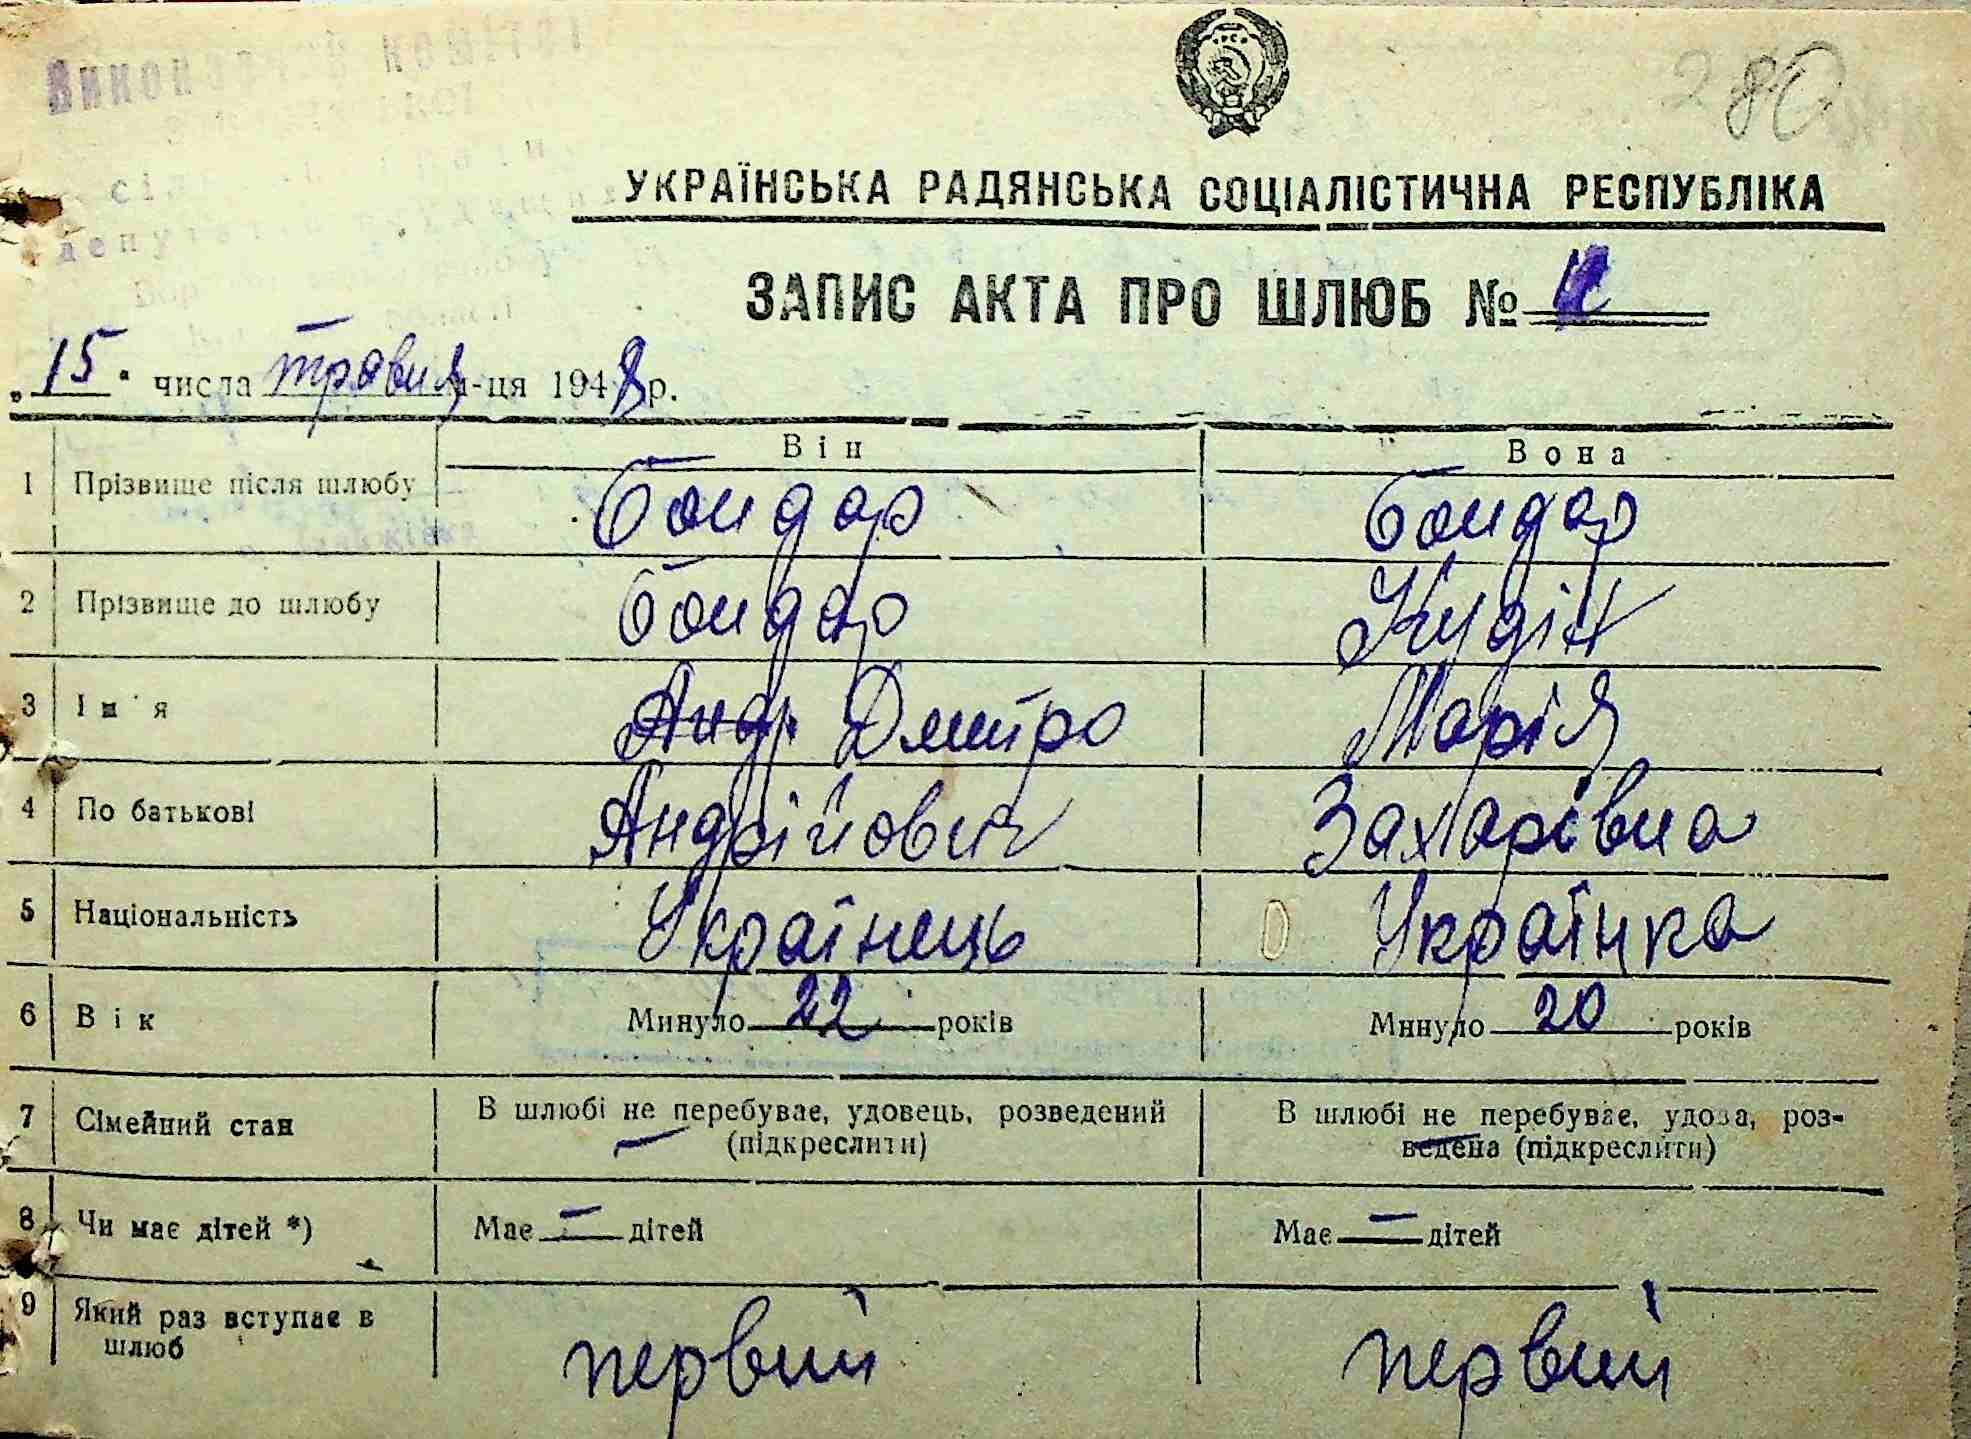 280
Виконавчий комітет
депутатів трудящих
УКРАЇНСЬКА РАДЯНСЬКА СОЦІАЛІСТИЧНА РЕСПУБЛІКА
ЗАПИС АКТА ПРО ШЛЮБ №
„15“ числа травня м-ця 1948 р.
Він Вона
1 Прізвище після шлюбу Бондар Бондар
2 Прізвище до шлюбу Бондар Кудін
3 Ім'я Андр. Дмитро Марія
4 По батькові Андрійович Захарівна
5 Національність Українець Українка
6 Вік Минуло 22 років Минуло 20 років
7 Сімейний стан В шлюбі не перебуває, удовець, розведений (підкреслити) В шлюбі не перебуває, удова, роз-
ведена (підкреслити)
8 Чи має дітей *) Має — дітей Має — дітей
9 Який раз вступає в шлюб первий первий